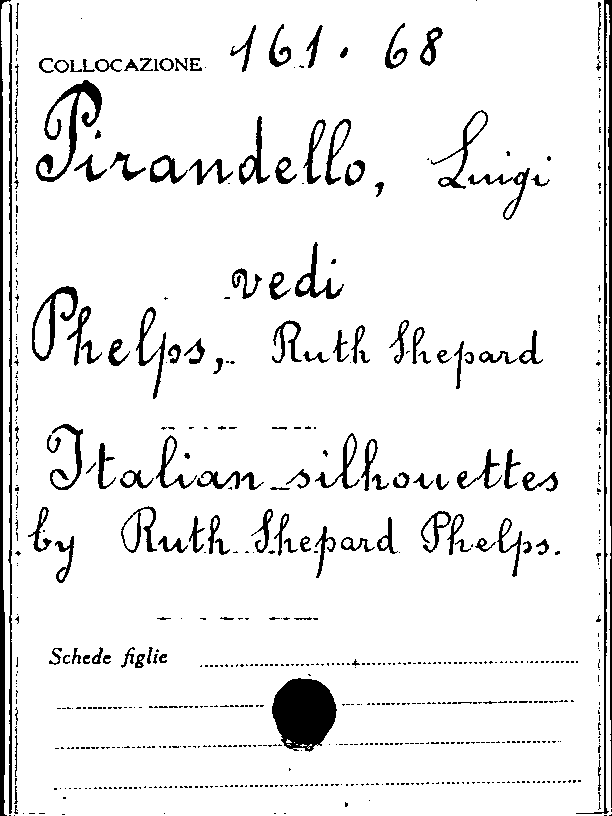 COLLOCAZIONE 161. 68
Pirandello, Luigi
vedi
Phelps, Ruth Shepard
Italian silhouettes
by Ruth Shepard Phelps.
Schede figlie